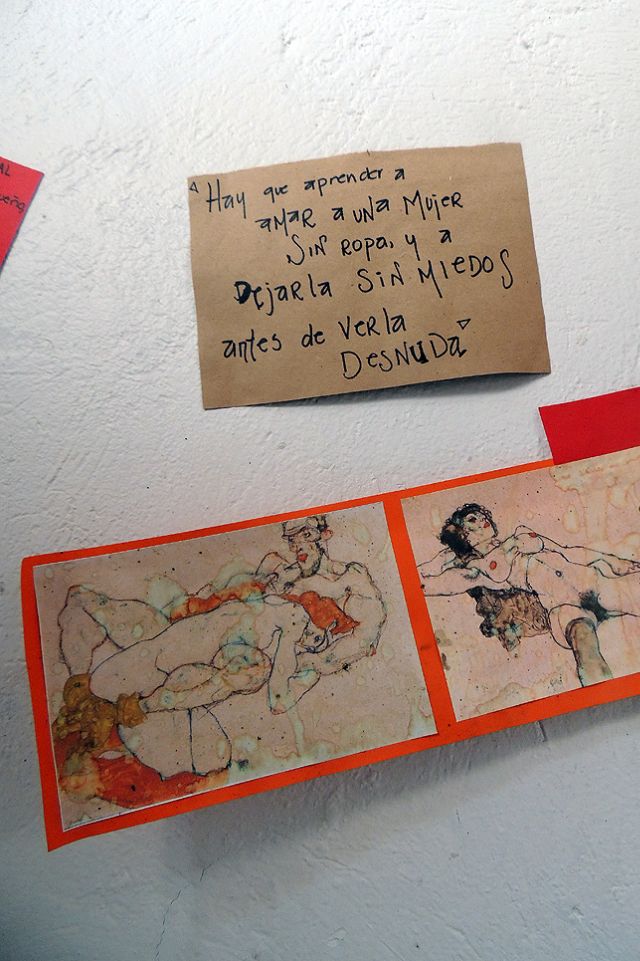 AL
ueña,
"Hay que aprender a
amar a una mujer
sin ropa, y a
dejarla sin miedos
antes de verla
desnuda"